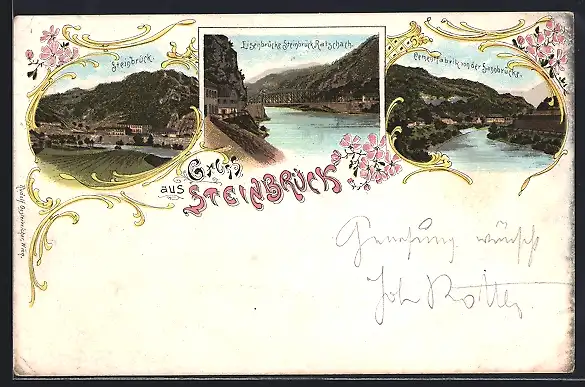 Steinbrück.
Eisenbrücke Steinbrück Ratschach.
Cementfabrik von der Sannbrücke.
Gruss
aus
STEINBRÜCK
Genesung wünscht
Joh